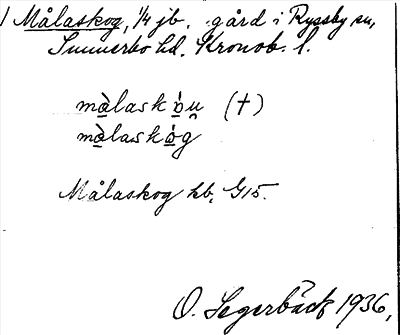 1 Målaskog, 1/4 jb. gård i Ryssby sn,
Sunnerbo hd. Kronob. l.
må̀laskå̀u̯ (†)
må̀laskå̀g
Målaskog hb. G15.
O. Segerbäck 1936,